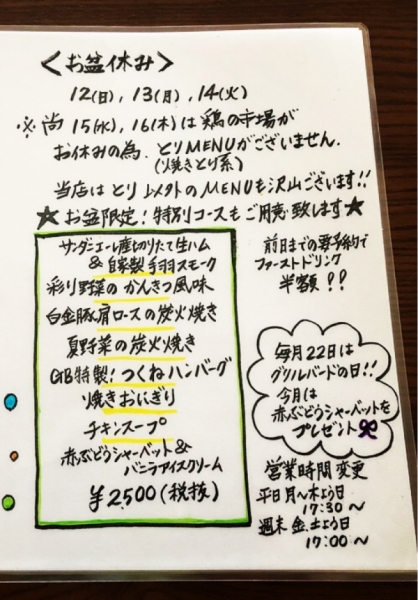 ＜お盆休み＞
12(日)、13(月)、14(火)
※尚15(水)、16(木)は鶏の市場が
お休みの為、とりMENUがございません。
(焼きとり系)
当店はとり以外のMENUも沢山ございます!!
★お盆限定!特別コースもご用意致します★
サンダニエーレ産切りたて生ハム
&自家製手羽スモーク
彩り野菜のかんきつ風味
白金豚肩ロースの炭火焼き
夏野菜の炭火焼き
GB特製!つくねハンバーグ
焼きおにぎり
チキンスープ
赤ぶどうシャーベット&
バニラアイスクリーム
¥2,500(税抜)
前日までの要予約で
ファーストドリンク
半額!!
毎月22日は
グリルバードの日!!
今月は
赤ぶどうシャーベットを
プレゼント
営業時間変更
平日月〜木よう日
17:30〜
週末金、土よう日
17:00〜